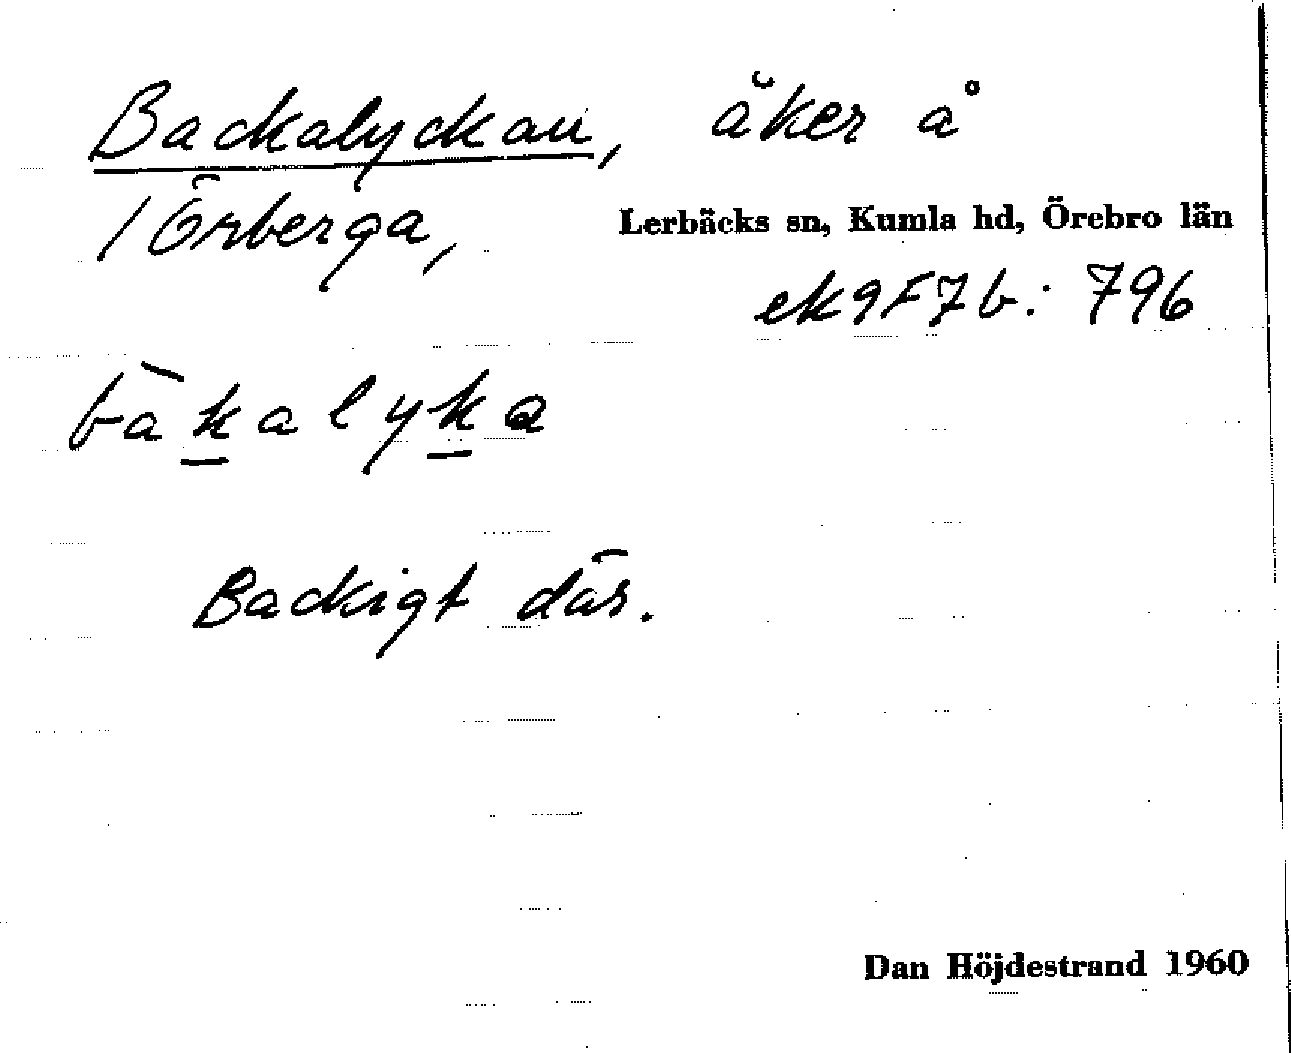 Backalyckan, åker å
1 Örberga, Lerbäcks sn, Kumla hd, Örebro län
ek 9F7b: 796
bàkalyka
Backigt där.
Dan Höjdestrand 1960